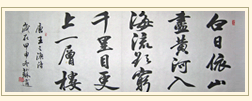 白日依山
盡黃河入
海流欲窮
千里目更
上一層樓
唐王之渙詩